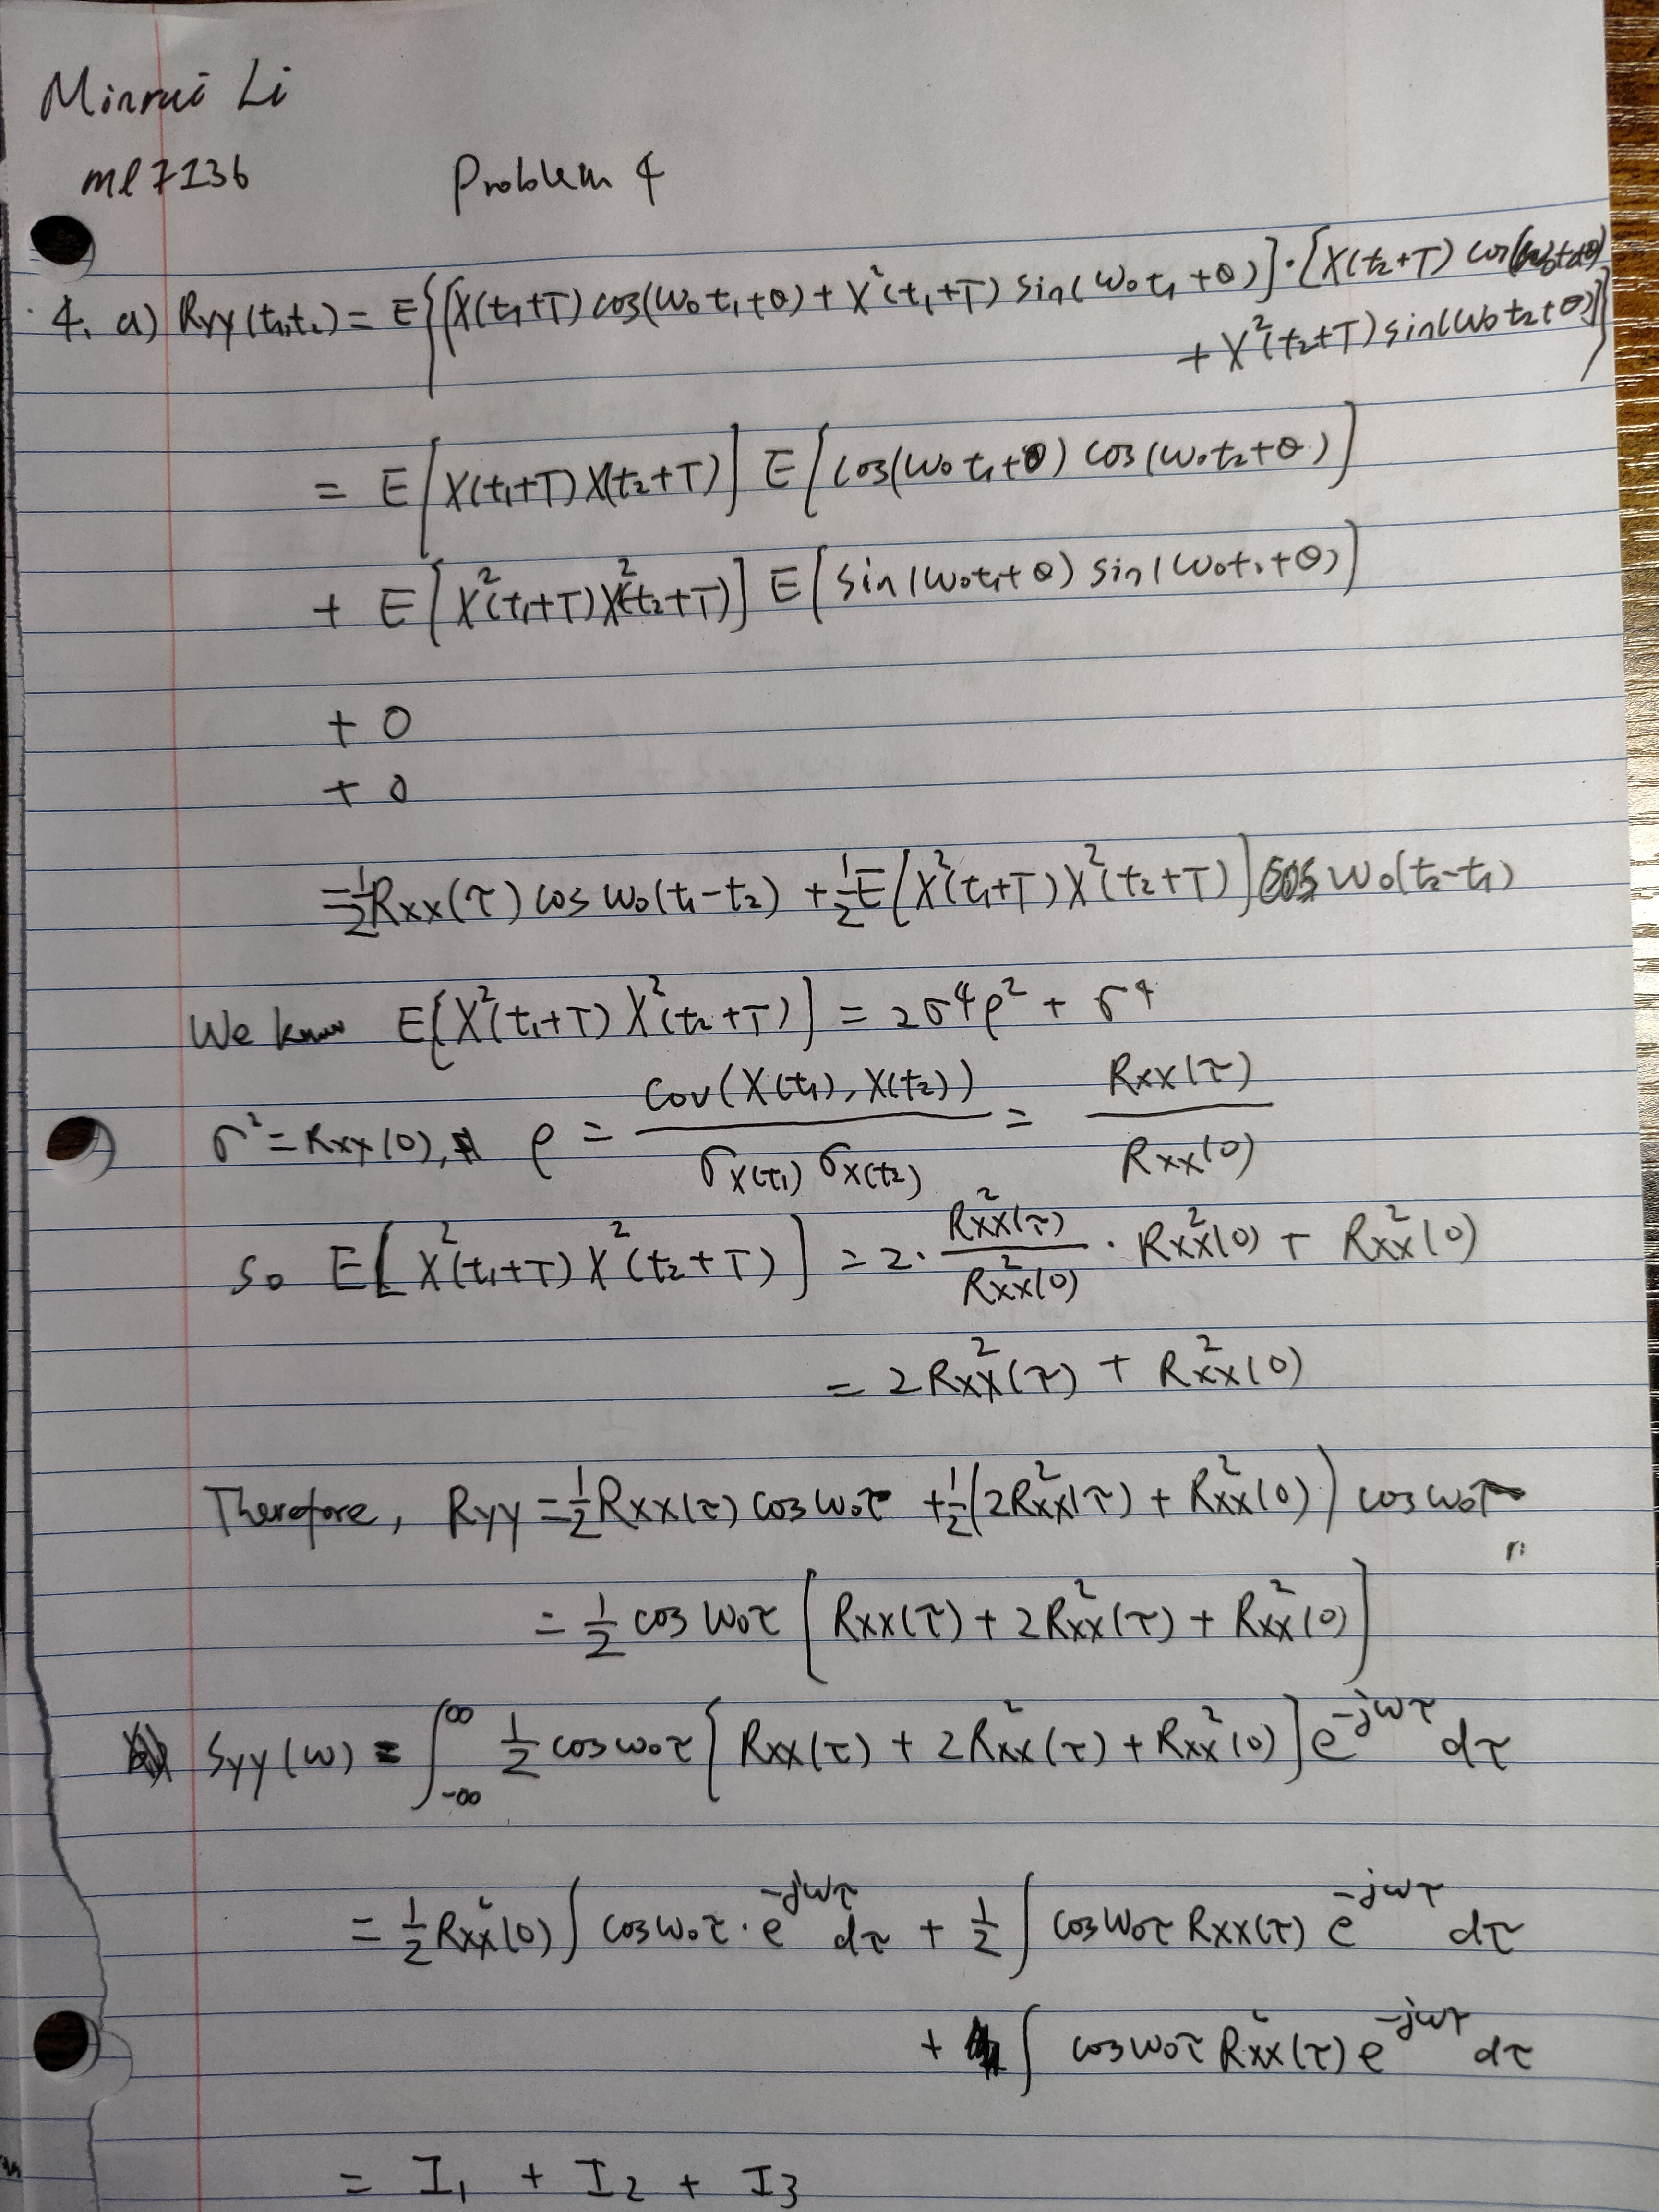 Minrui Li
ml7136 Problem 4
4. a) Ryy(t₁,t₂) = E{[X(t₁+T) cos(ω₀t₁+θ) + X²(t₁+T) sin(ω₀t₁+θ)]·[X(t₂+T) cos(ω₀t₂+θ)
+ X²(t₂+T) sin(ω₀t₂+θ)]}
= E[X(t₁+T) X(t₂+T)] E[cos(ω₀t₁+θ) cos(ω₀t₂+θ)]
+ E[X²(t₁+T) X²(t₂+T)] E[sin(ω₀t₁+θ) sin(ω₀t₂+θ)]
+ 0
+ 0
= ½ Rxx(τ) cos ω₀(t₁-t₂) + ½ E[X²(t₁+T) X²(t₂+T)] cos ω₀(t₂-t₁)
We know E[X²(t₁+T) X²(t₂+T)] = 2σ⁴ρ² + σ⁴
σ² = Rxx(0), ρ = Cov(X(t₁), X(t₂)) / σX(t₁) σX(t₂) = Rxx(τ) / Rxx(0)
So E[X²(t₁+T) X²(t₂+T)] = 2· Rxx²(τ) / Rxx²(0) · Rxx²(0) + Rxx²(0)
= 2Rxx²(τ) + Rxx²(0)
Therefore, Ryy = ½ Rxx(τ) cos ω₀τ + ½ (2Rxx²(τ) + Rxx²(0)) cos ω₀τ
= ½ cos ω₀τ [Rxx(τ) + 2Rxx²(τ) + Rxx²(0)]
Syy(ω) = ∫_{-∞}^{∞} ½ cos ω₀τ [Rxx(τ) + 2Rxx²(τ) + Rxx²(0)] e^{-jωτ} dτ
= ½ Rxx²(0) ∫ cos ω₀τ · e^{-jωτ} dτ + ½ ∫ cos ω₀τ Rxx(τ) e^{-jωτ} dτ
+ ∫ cos ω₀τ Rxx²(τ) e^{-jωτ} dτ
= I₁ + I₂ + I₃